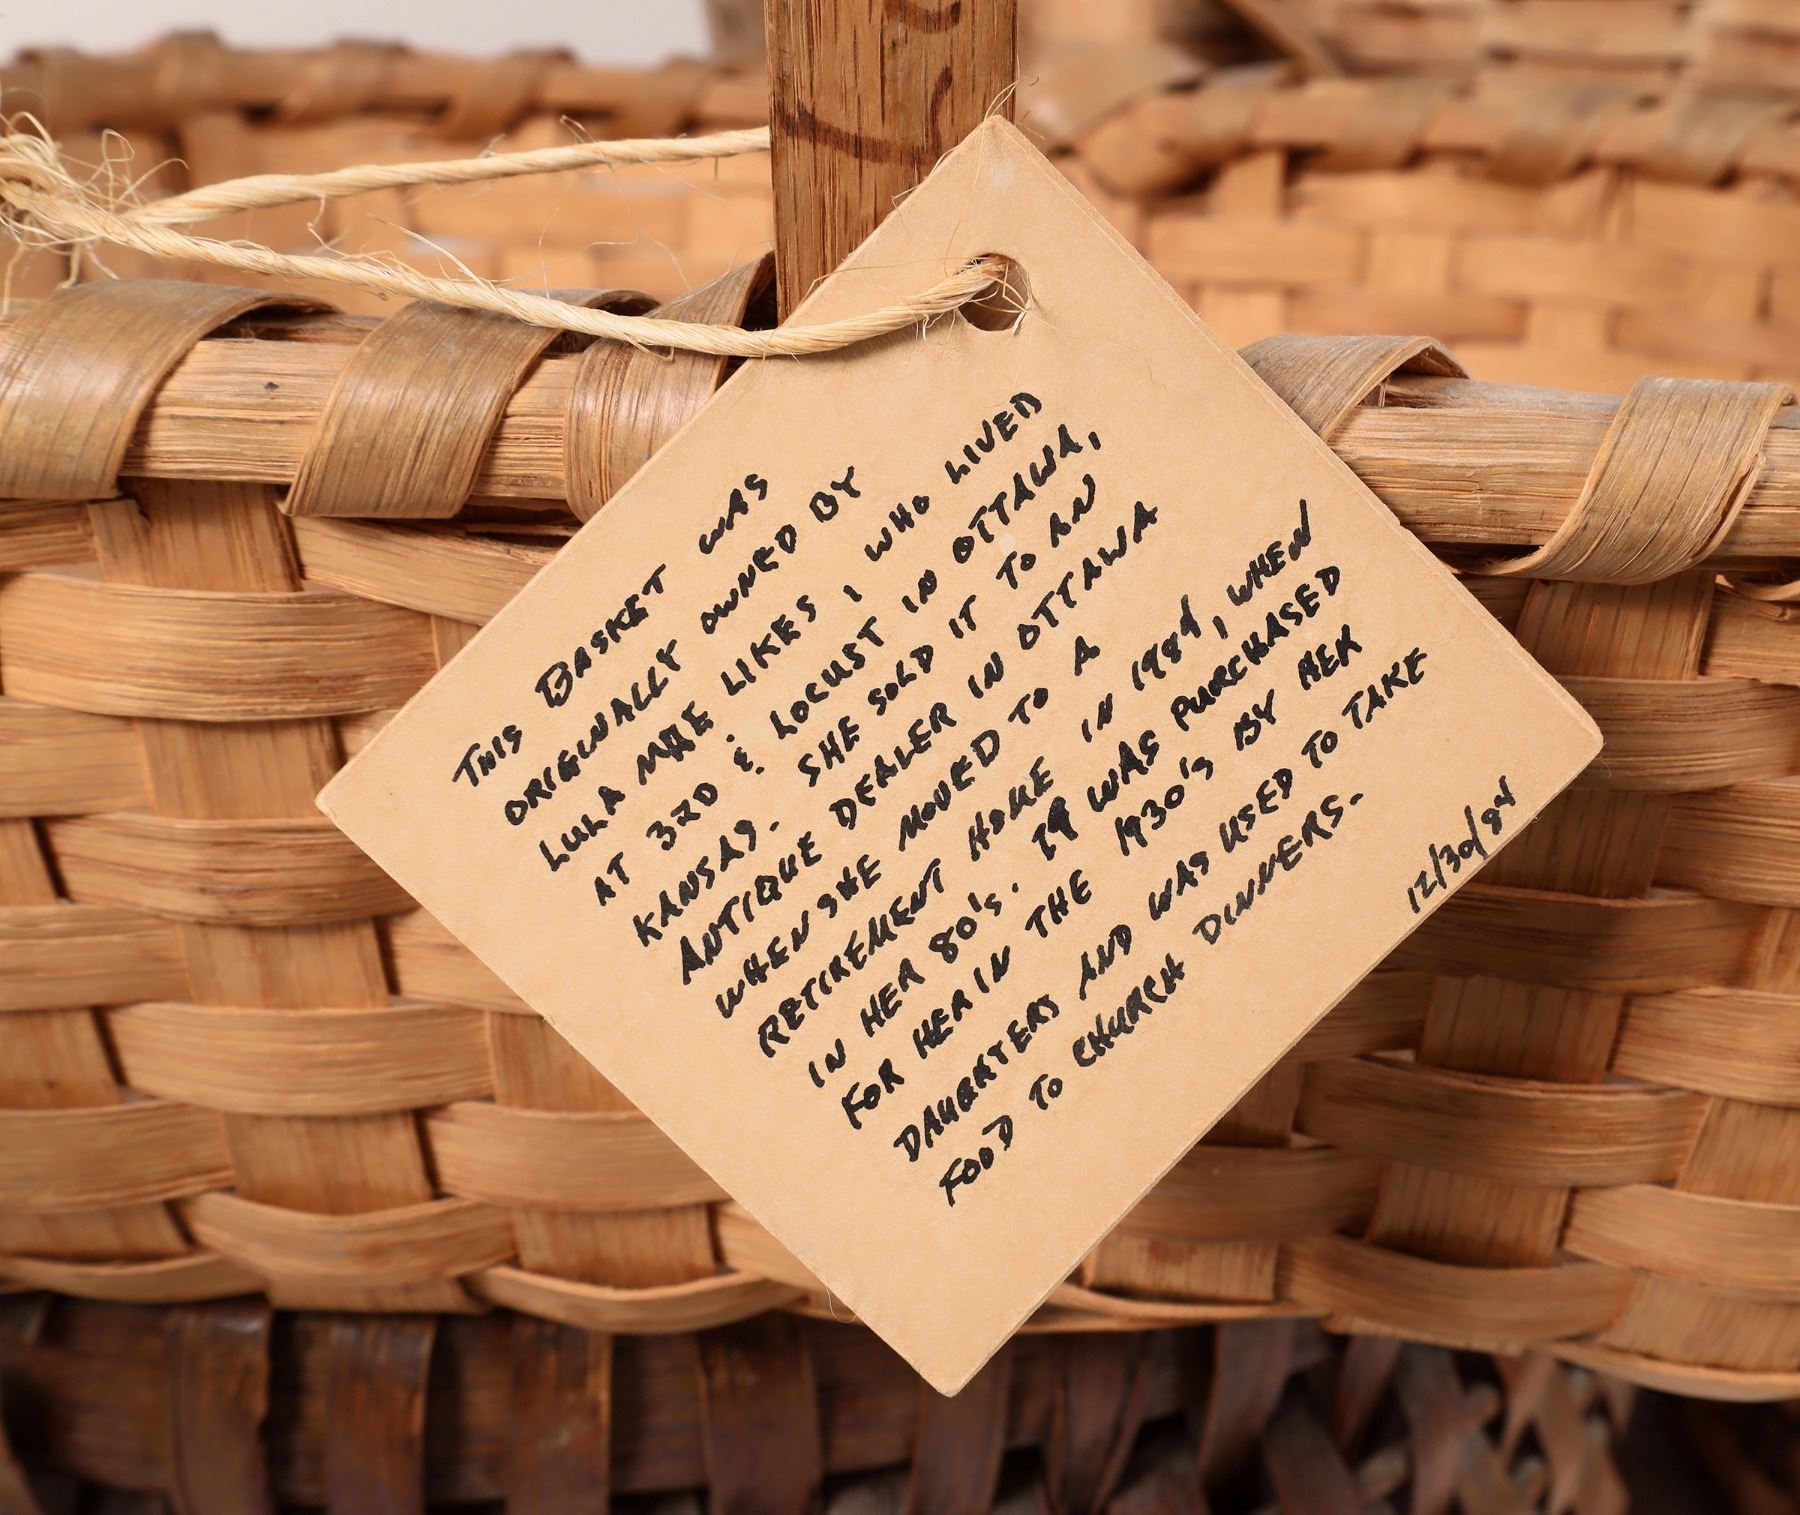 THIS BASKET WAS
ORIGINALLY OWNED BY
LULA MAE LIKES, WHO LIVED
AT 3RD & LOCUST IN OTTAWA,
KANSAS. SHE SOLD IT TO AN
ANTIQUE DEALER IN OTTAWA
WHEN SHE MOVED TO A
RETIREMENT HOME IN 1984, WHEN
IN HER 80'S. IT WAS PURCHASED
FOR HER IN THE 1930'S BY HER
DAUGHTERS AND WAS USED TO TAKE
FOOD TO CHURCH DINNERS.
12/30/84